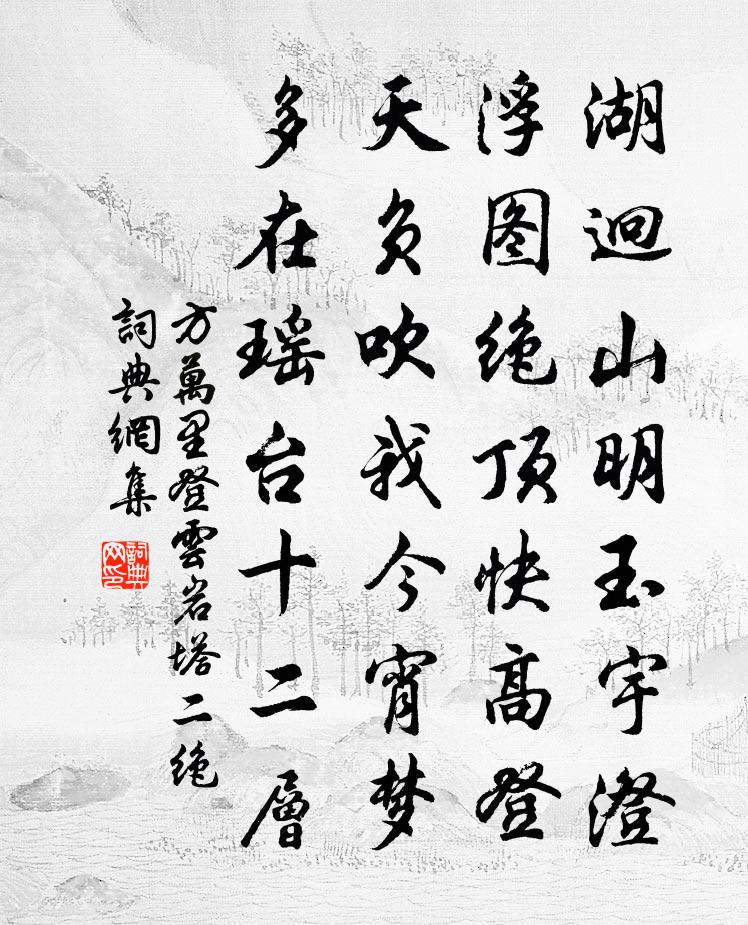 湖迥山明玉宇澄
浮图绝顶快高登
天负吹我今宵梦
多在瑶台十二層
方萬里登雲岩塔二绝
詞典網集
詞典网印